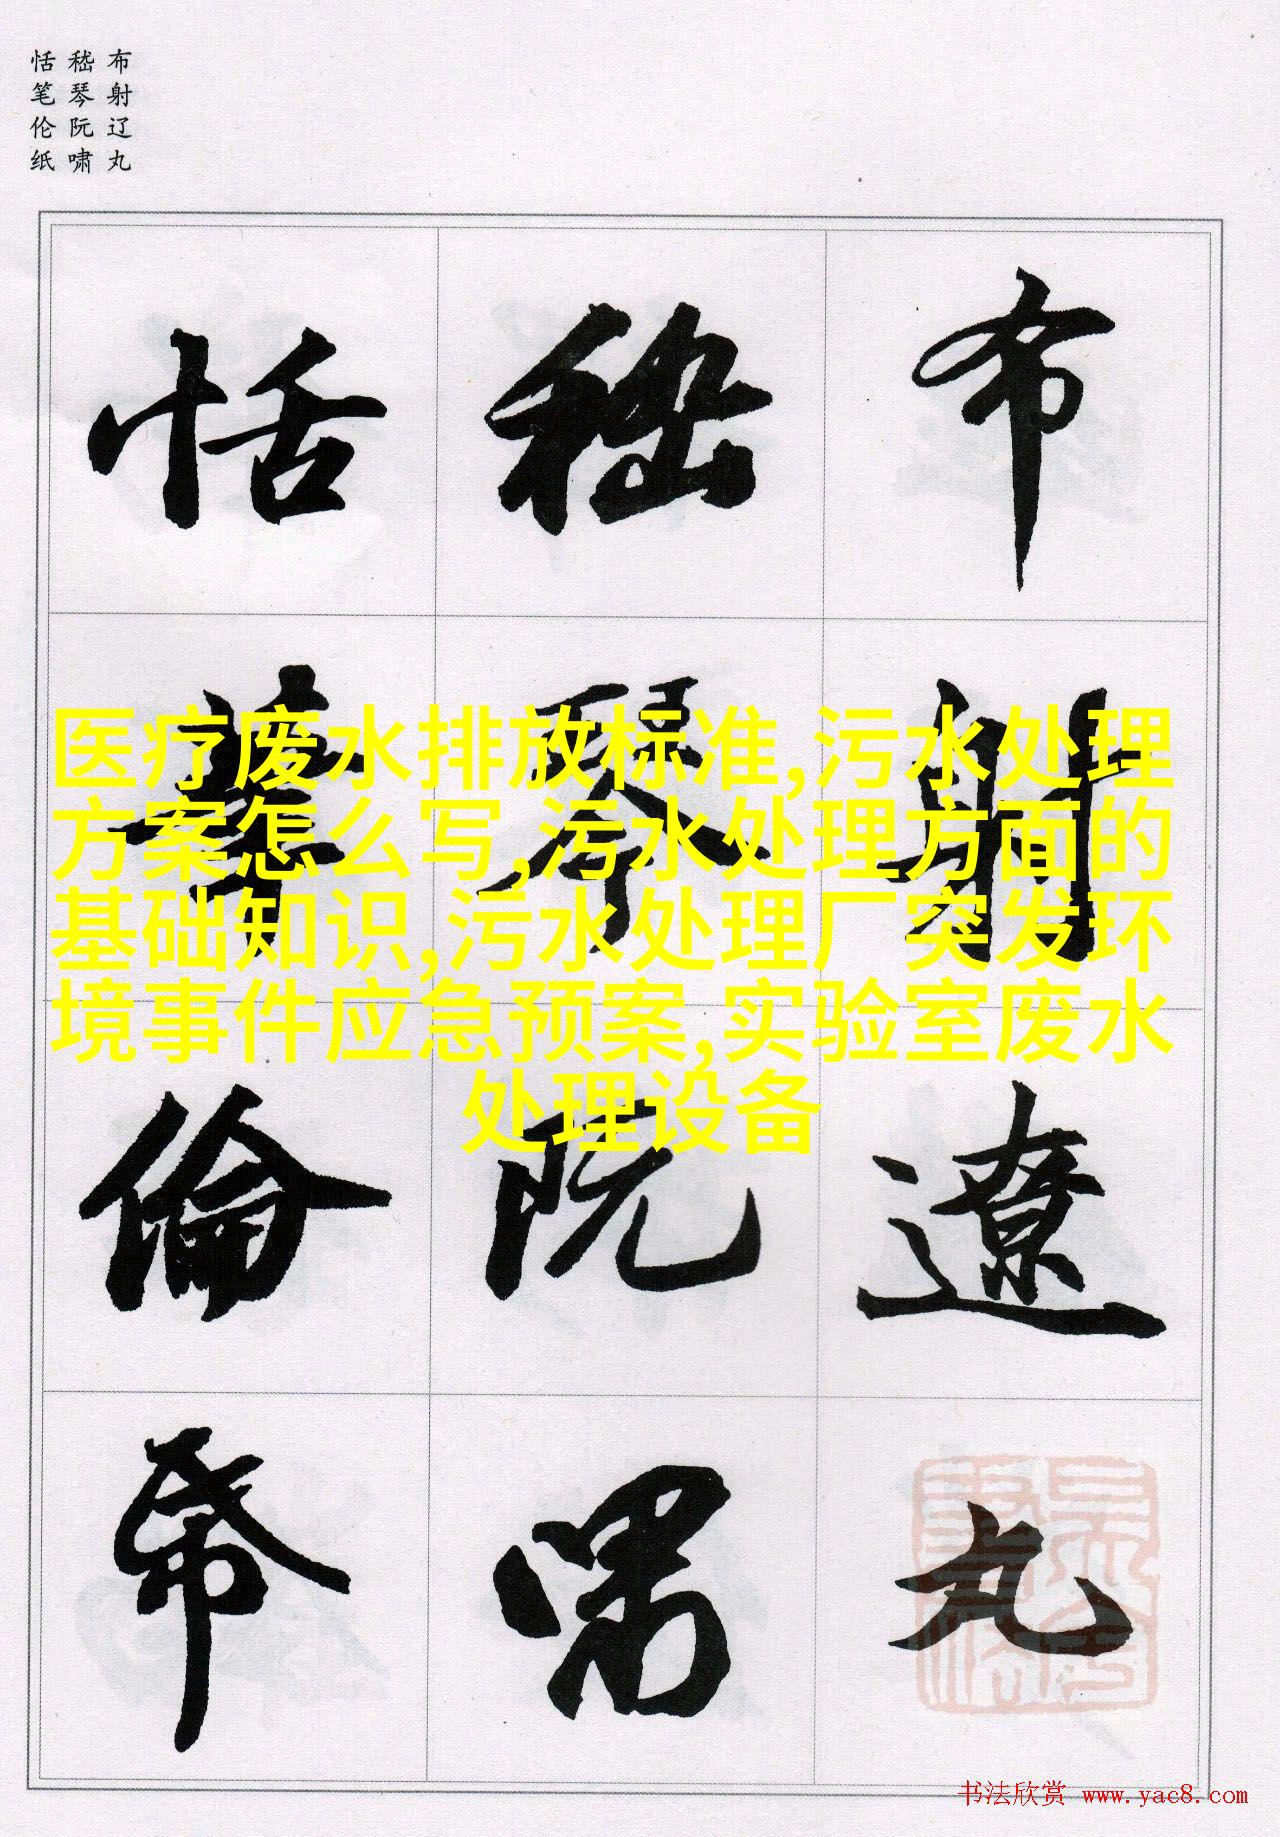 布射辽丸
嵇琴阮啸
恬笔伦纸
布
射
遼
丸
嵇
琴
阮
嘯
恬
筆
倫
帋
医疗废水排放标准,污水处理
方案怎么写,污水处理方面的
基础知识,污水处理厂突发环
境事件应急预案,实验室废水
处理设备
书法欣赏 www.yac8.com